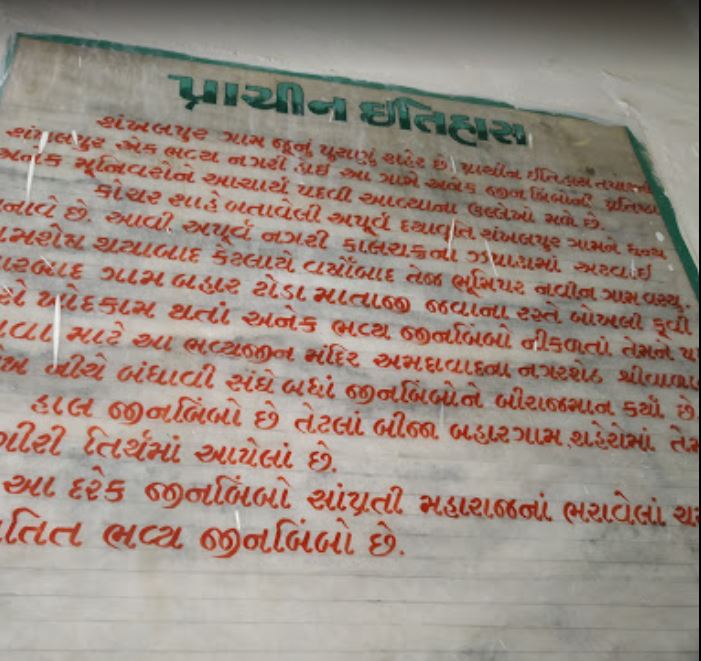 પ્રાચીન ઇતિહાસ
શંખલપુર ગામ જૂનું પુરાણું શહેર છે. પ્રાચીન ઈતિહાસ તપાસતાં
શંખલપુર એક ભવ્ય નગરી હોઈ આ ગામે અનેક જીન બિંબોની પ્રતિષ્ઠા
અનેક મૂનિવરોને આચાર્ય પદવી આવ્યાના ઉલ્લેખો મળે છે.
કોચર શાહે બતાવેલી અપૂર્વ દયાવૃતિ શંખલપુર ગામને ધન્ય
બનાવે છે. આવી અપૂર્વ નગરી કાલચક્રના ઝપાટામાં અટવાઈ
થયાબાદ કેટલાયે વર્ષોબાદ તેજ ભૂમિપર નવીન ગામ વસ્યુ.
ગામ બહાર ટોડા માતાજી જવાના રસ્તે બોખલી કૂવી
ખોદકામ થતાં અનેક ભવ્ય જીનબિંબો નીકળતાં તેમને
માટે આ ભવ્યજીન મંદિર અમદાવાદના નગરશેઠ
નીચે બંધાવી સંઘે બધાં જીનબિંબોને બીરાજમાન કર્યાં છે.
હાલ જીનબિંબો છે તેટલાં બીજા બહારગામ શહેરોમાં તેમ
તિર્થમાં આપેલાં છે.
આ દરેક જીનબિંબો સાંપ્રતી મહારાજનાં ભરાવેલાં
ભવ્ય જીનબિંબો છે.